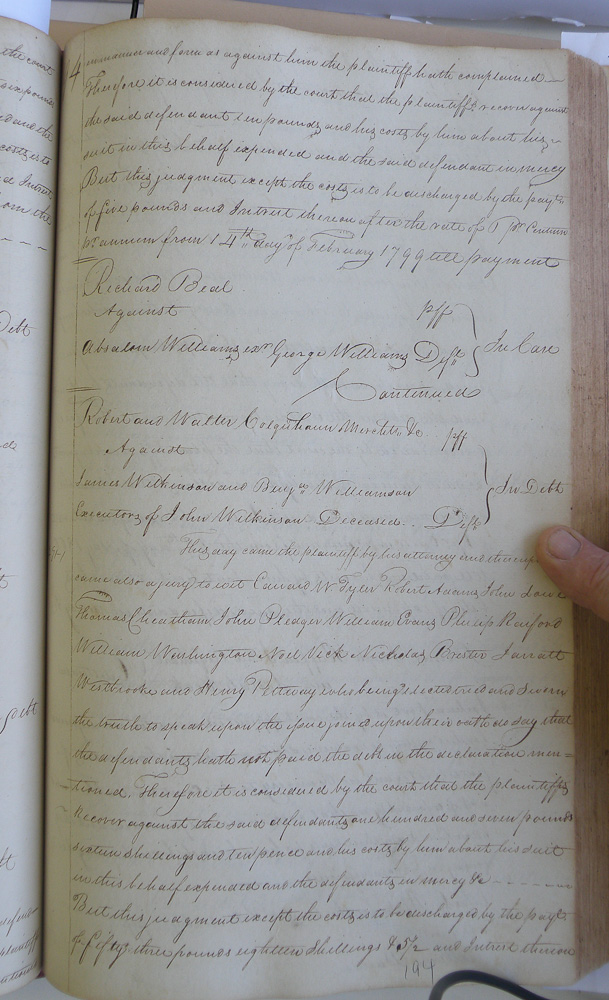 4 mmannce and force as against him the plaintiff hath complained
Therefore it is considered by the court that the plaintiffs recover against
the said defendant ten pounds and his costs by him about his
suit in this behalf expended and the said defendant in mercy
But this judgment except the costs is to be discharged by the paymt.
of five pounds and Interest thereon after the rate of Pr Centum
pr. annum from 14th day of February 1799 till payment
Richard Beal
Against pff
Absalom Williams exr George Williams Deft In Case
Continued
Robert and Walter Colquhoun Merchts. &c. pff
Against
James Wilkinson and Benja. Williamson In Debt
Executors of John Wilkinson Deceased.. Defts
This day came the plaintiff by his attorney and thereupon
came also a jury to wit Edward W. Tyler Robert Adams John Lowe
Thomas Cheatham John Pledger William Evans Philip Raiford
William Washington Noel Vick Nicholas Jarratt
Westbrooke and Henry Pettway who being elected tried and sworn
the truth to speak upon the issue joined upon their oath do say that
the defendants hath not paid the debt in the declaration men=
tioned. Therefore it is considered by the court that the plaintiffs
Recover against the said defendants one hundred and seven pounds
sixteen shillings and ten pence and his costs by him about his suit
in this behalf expended and the defendants in mercy &c
But this judgment except the costs is to be discharged by the paymt
of fifty three pounds eighteen shillings & 5/2 and Interest thereon
194